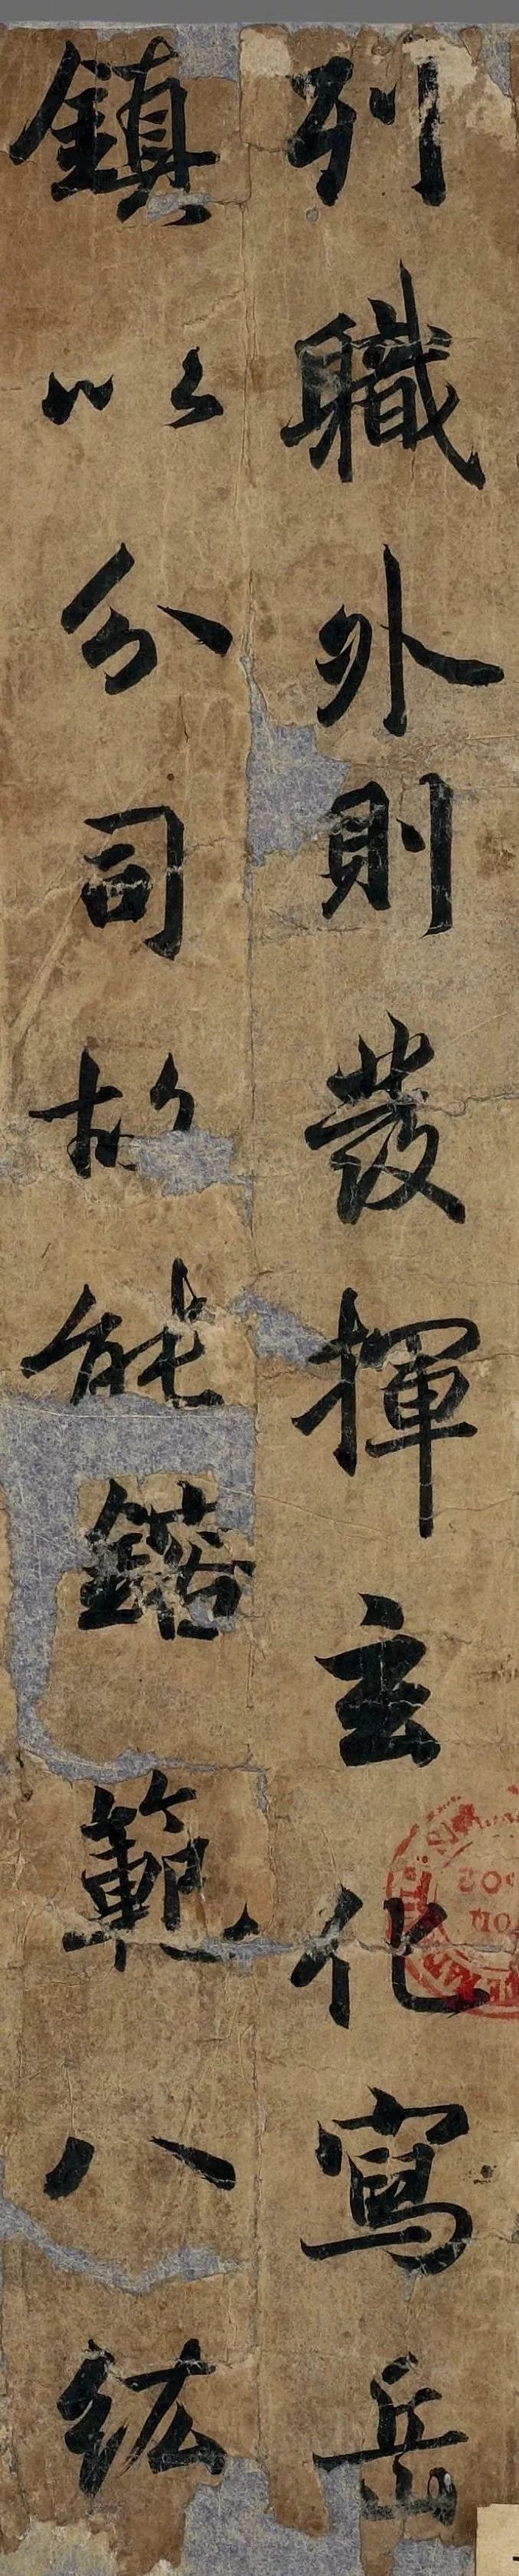 列職外則發揮玄化寫岳
鎮以分司故能鎔範八紘